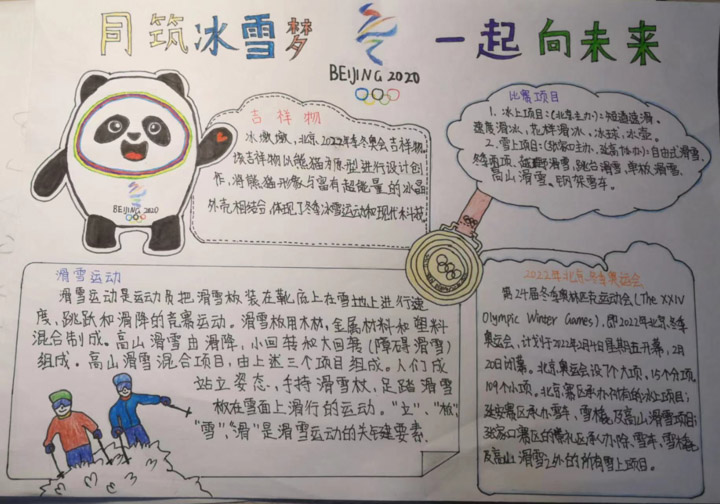 同筑冰雪梦
一起向未来
BEIJING 2020
BEIJING 2020
吉祥物
冰墩墩,北京2022年冬季奥会吉祥物。
该吉祥物以熊猫为原型进行设计创
作,将熊猫形象与富有超能量的冰晶
外壳相结合,体现了冬季冰雪运动和现代科技
比赛项目
1. 冰上项目:(北京主办):短道速滑、
速度滑冰,花样滑冰、冰球、冰壶。
2. 雪上项目:(张家口主办、延庆协办):自由式滑雪、
冬季两项、越野滑雪,跳台滑雪、单板滑雪、
高山滑雪、钢架雪车。
滑雪运动
滑雪运动是运动员把滑雪板装在靴底上在雪地上进行速
度、跳跃和滑降的竞赛运动。滑雪板用木材,金属材料和塑料
混合制成。高山滑雪由滑降,小回转和大回转(障碍滑雪)
组成。高山滑雪混合项目,由上述三个项目组成。人们成
站立姿态、手持滑雪杖、足踏滑雪
板在雪面上滑行的运动。“立”、“板”、
“雪”、“滑”是滑雪运动的关键要素.
2022年北京冬季奥运会
第24届冬季奥林匹克运动会(The XXIV
Olympic Winter Games),即2022年北京冬季
奥运会,计划于2022年2月4日星期五开幕,2月
20日闭幕。北京奥运会设7个大项,15个分项
109个小项。北京赛区承办所有的冰上项目;
延庆赛区承办雪车,雪橇及高山滑雪项目;
张家口赛区的崇礼区承办除、雪车、雪橇
及高山滑雪之外的所有雪上项目。